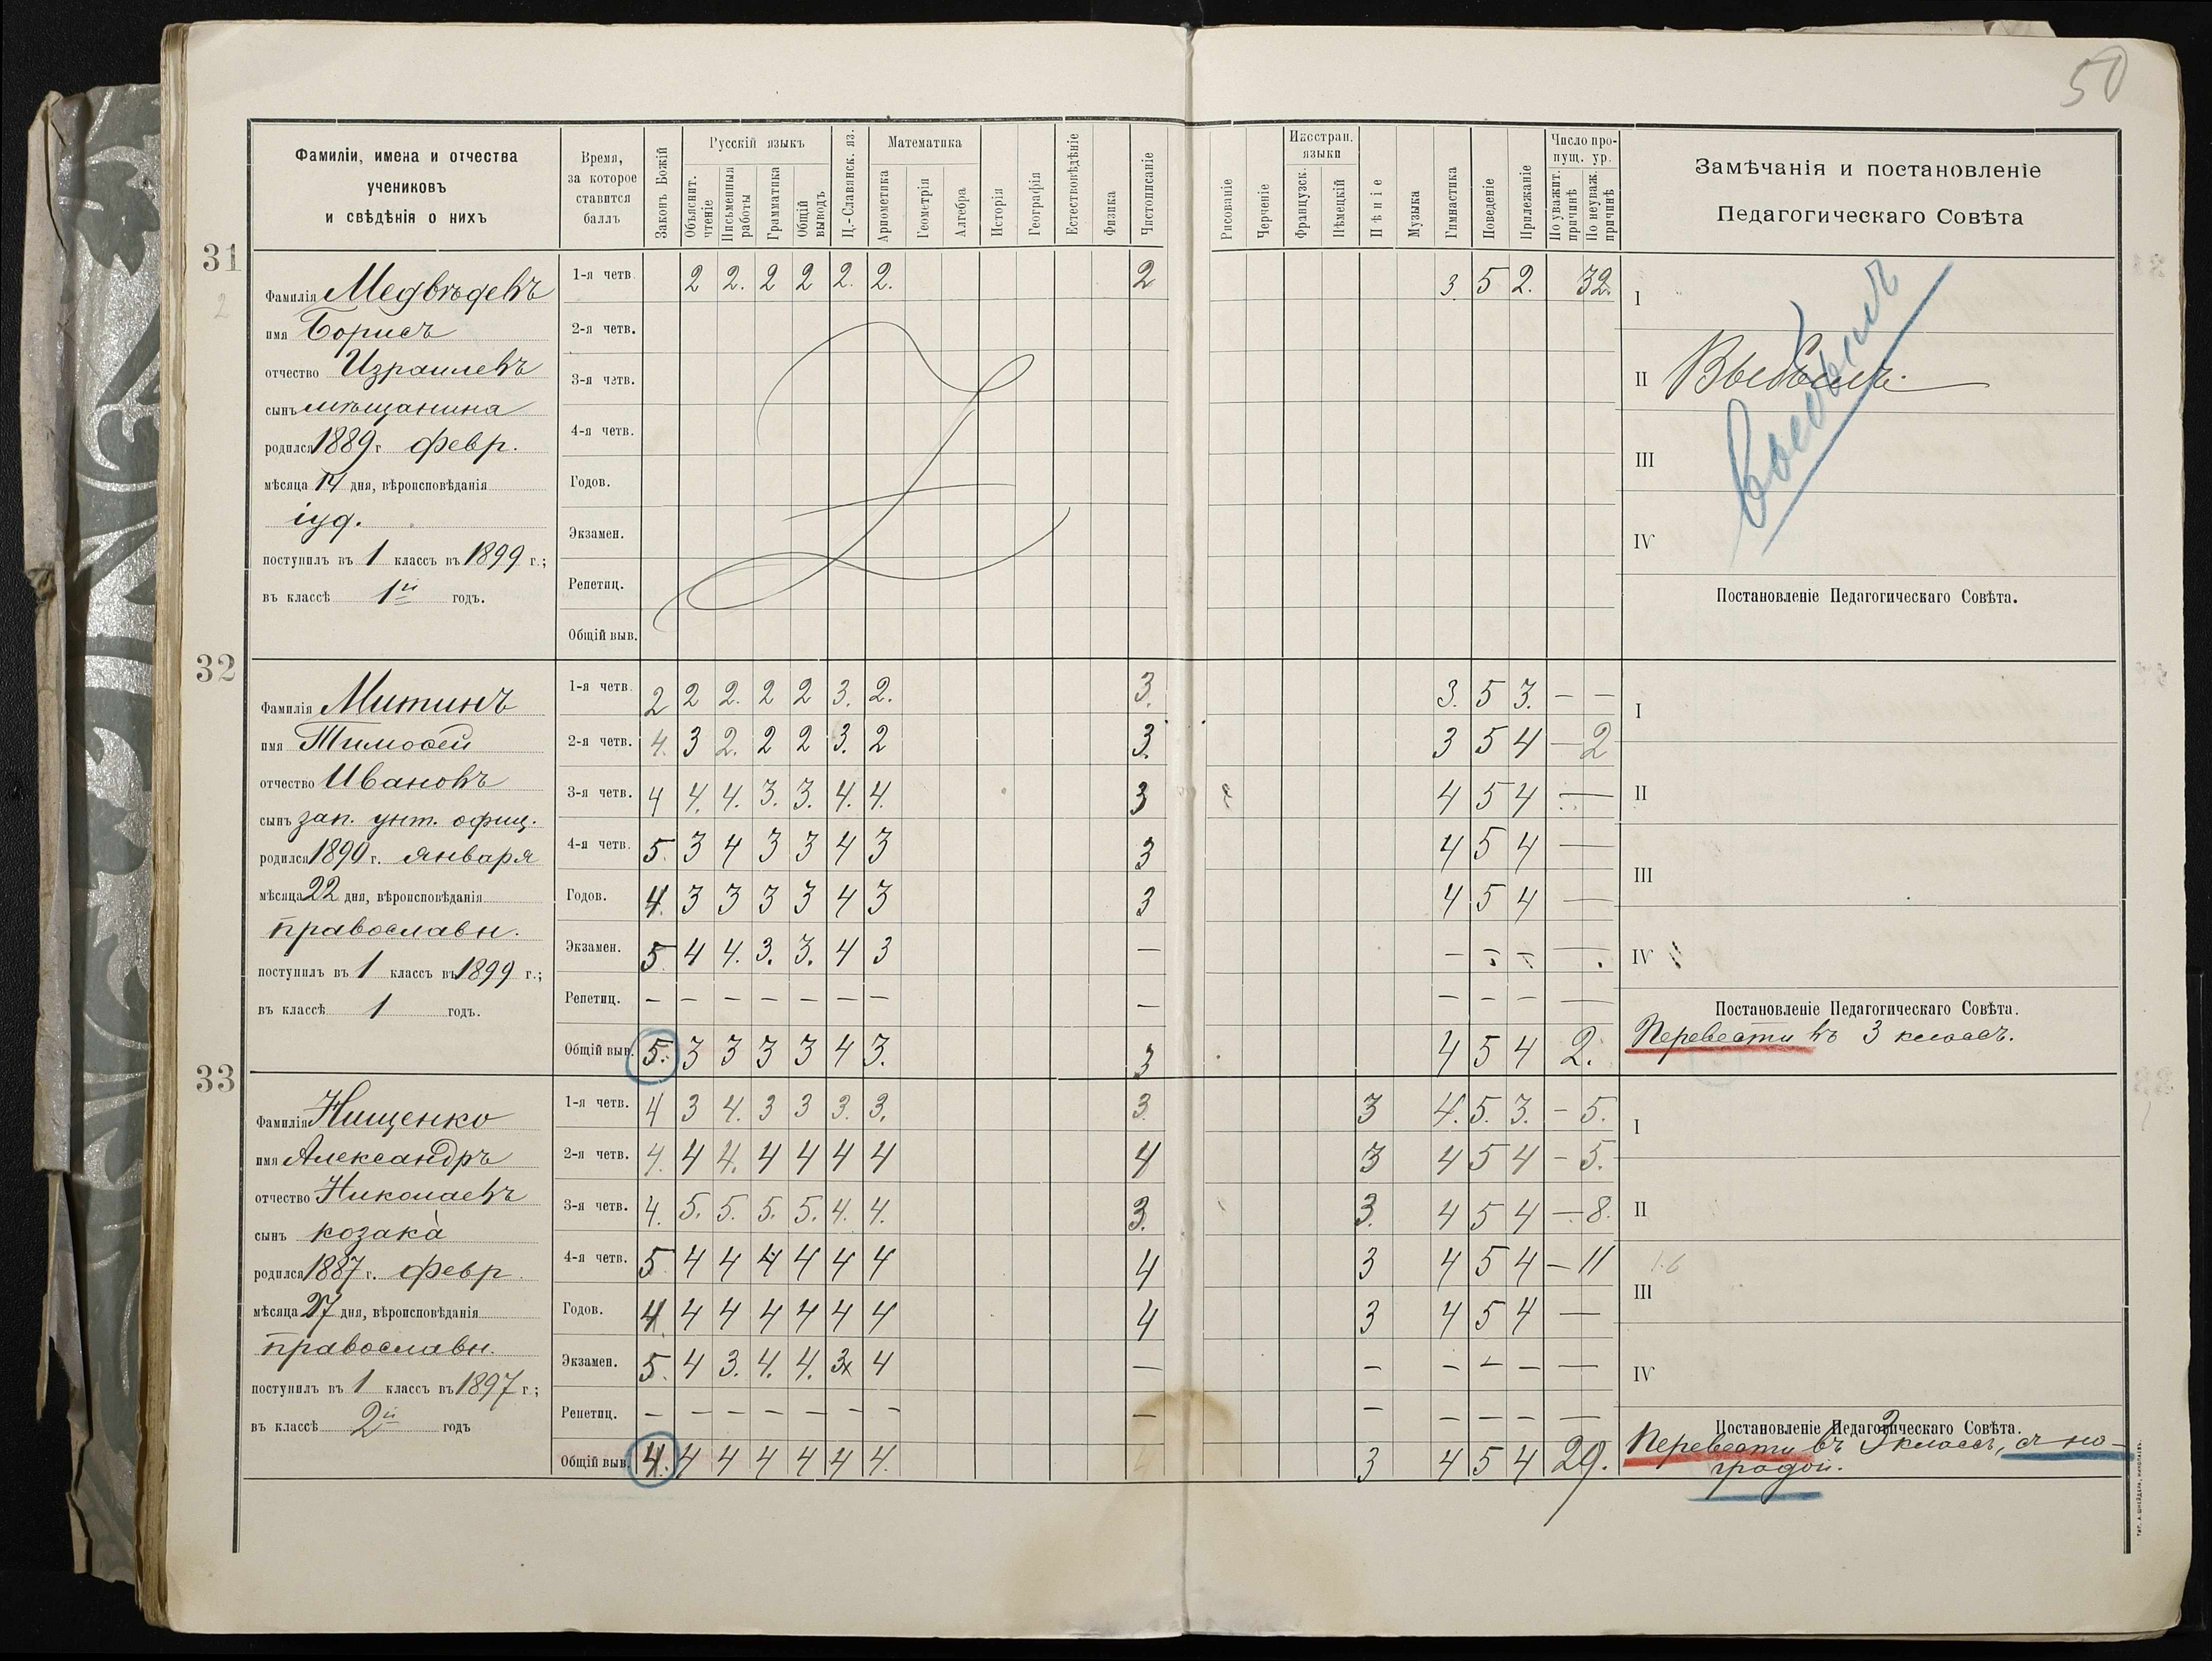 50
Фамиліи, имена и отчества
учениковъ
и свѣдѣнія о нихъ
Время,
за которое
ставится
баллъ
Законъ Божій
Русскій языкъ
Объяснит. чтеніе
Письменныя работы
Грамматика
Общій выводъ
Ц.-Славянск. яз.
Математика
Ариѳметика
Геометрія
Алгебра
Исторія
Географія
Естествовѣдѣніе
Физика
Чистописаніе
Рисованіе
Черченіе
Иностран. языки
Французск.
Нѣмецкій
Пѣніе
Музыка
Гимнастика
Поведеніе
Прилежаніе
Число пропущ. ур.
По уважит. причинѣ
По неуваж. причинѣ
Замѣчанія и постановленіе
Педагогическаго Совѣта
31
2
Фамилія Медвѣдевъ
имя Борисъ
отчество Израилевъ
сынъ мѣщанина
родился 1889 г. февр.
мѣсяца 14 дня, вѣроисповѣданія
іуд.
поступилъ въ 1 классъ въ 1899 г.;
въ классѣ 1й годъ.
1-я четв. 2 2. 2 2 2. 2. 2 3. 5 2. 32.
2-я четв.
3-я четв.
4-я четв.
Годов.
Экзамен.
Репетиц.
Общій выв.
I
II Выбылъ.
выбылъ
III
IV
Постановленіе Педагогическаго Совѣта.
32
Фамилія Митинъ
имя Тимоѳей
отчество Ивановъ
сынъ зап. унт. офиц.
родился 1890 г. января
мѣсяца 22 дня, вѣроисповѣданія
православн.
поступилъ въ 1 классъ въ 1899 г.;
въ классѣ 1 годъ.
1-я четв. 2 2 2. 2 2 3. 2. 3. 3. 5 3. — —
2-я четв. 4. 3 2. 2 2 3. 2 3. 3 5 4 — 2
3-я четв. 4 4. 4. 3. 3. 4. 4. 3 4 5 4 —
4-я четв. 5. 3 4 3 3 4 3 3 4 5 4 —
Годов. 4. 3 3 3 3 4 3 3 4 5 4 —
Экзамен. 5 4 4. 3. 3. 4 3 — — — — —
Репетиц. — — — — — — — — — — — —
Общій выв. 5. 3 3 3 3 4 3. 3 4 5 4 2.
I
II
III
IV
Постановленіе Педагогическаго Совѣта.
Перевести въ 3 классъ.
33
Фамилія Нищенко
имя Александръ
отчество Николаевъ
сынъ козака
родился 1887 г. февр.
мѣсяца 27 дня, вѣроисповѣданія
православн.
поступилъ въ 1 классъ въ 1897 г.;
въ классѣ 2й годъ
1-я четв. 4 3 4. 3 3 3. 3. 3. 3 4. 5. 3. — 5.
2-я четв. 4. 4 4. 4 4 4 4 4 3 4 5 4 — 5.
3-я четв. 4. 5. 5. 5. 5. 4. 4. 3. 3. 4 5 4 — 8.
4-я четв. 5 4 4 4 4 4 4 4 3 4 5 4 — 11
Годов. 4. 4 4 4 4 4 4 4 3 4 5 4 —
Экзамен. 5. 4 3. 4. 4. 3x 4 — — — — — —
Репетиц. — — — — — — — — — — — — —
Общій выв. 4. 4 4 4 4 4 4. 3 4 5 4 29.
I
II
III
IV
Постановленіе Педагогическаго Совѣта.
Перевести въ классъ, съ на-
градой.
ТИП. А. ШНЕЙДЕРА, НИКОЛАЕВЪ.